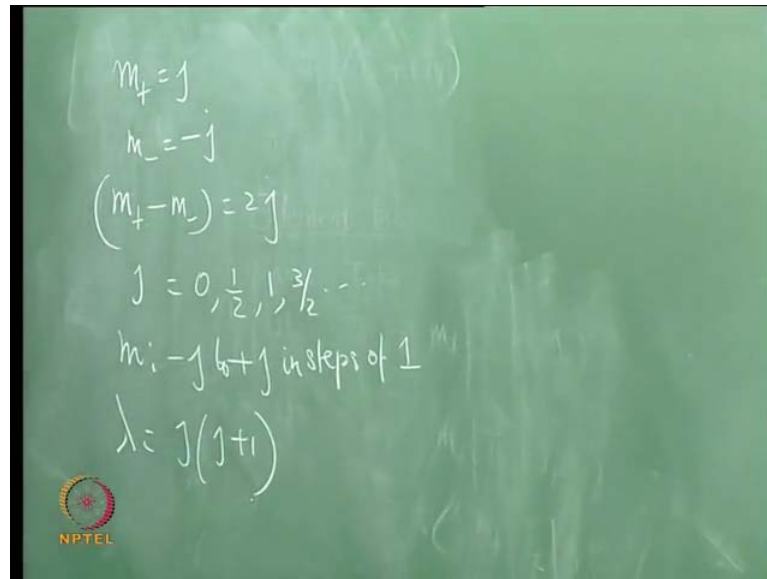 m₊ = j
m₋ = -j
(m₊ - m₋) = 2j
j = 0, 1/2, 1, 3/2 ...
m: -j to + j in steps of 1
λ = j(j+1)
NPTEL